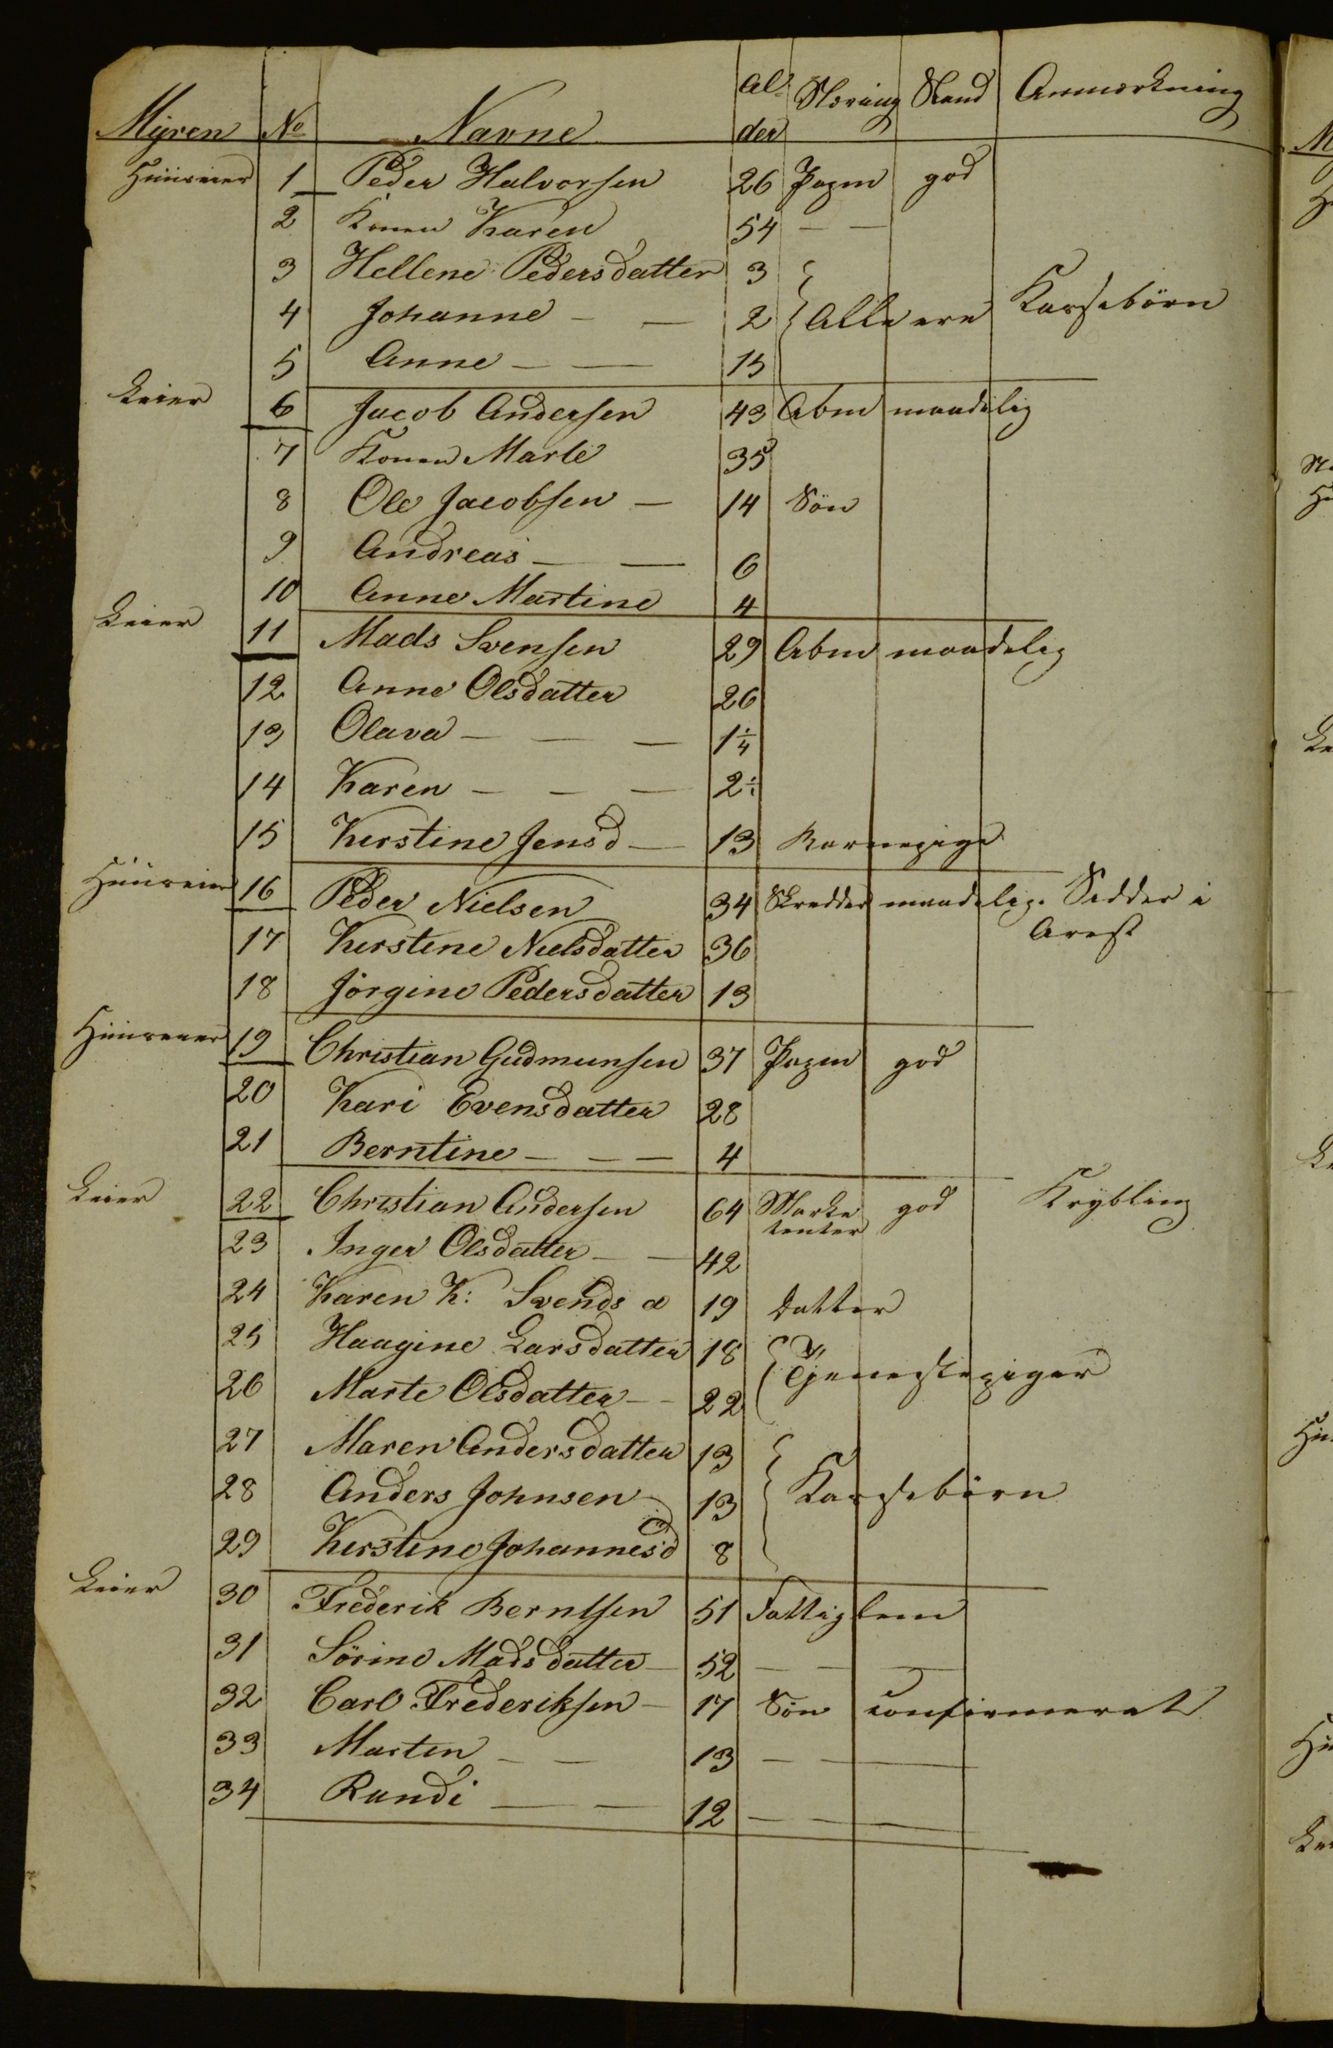 Myren No Navne Al- der Næring Stand Anmærkning
Huuseier 1 Peder Halvorsen 26 god
2 Konen Karen 54 — —
3 Hellene Pedersdatter 3
4 Johanne — — 2 Alle ere Kassebörn
5 Anne — — 15
Leier 6 Jacob Andersen 43 Abm maadelig
7 Konen Marte 35
8 Ole Jacobsen — 14 Sön
9 Andreas — — 6
10 Anne Martine 4
Leier 11 Mads Svensen 29 Abm maadelig
12 Anne Olsdatter 26
13 Olava — — — 1¼
14 Karen — — — 2
15 Kirstine Jensd — 13 Barnepige
Huuseier 16 Peder Nielsen 34 Skredder maadelig. Sidder i
Arest
17 Kirstine Nielsdatter 36
18 Jörgine Pedersdatter 13
Huuseier 19 Christian Gudmunsen 37 god
20 Kari Evensdatter 28
21 Berntine — — — 4
Leier 22 Christian Andersen 64 Marke tenter god Krybling
23 Inger Olsdatter — — 42
24 Karen K: Svends d 19 Datter
25 Haagine Larsdatter 18
26 Marte Olsdatter — 22 Tjenestepiger
27 Maren Andersdatter 13
28 Anders Johnsen 13 Kassebörn
29 Kirstine Johannesd 8
Leier 30 Frederik Berntsen 51 Fattiglem
31 Sörine Madsdatter — 52 — — —
32 Carl Frederiksen — 17 Sön confirmeret
33 Martin — — 13 — — —
34 Randi — — 12 — — —